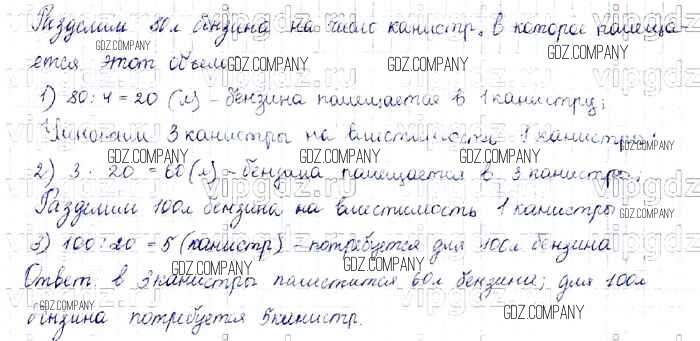 Разделим 80л бензина на число канистр, в которое помеща-
ется этот объем
1) 80:4=20 (л) – бензина помещается в 1 канистру;
Умножаем 3 канистры на вместимость 1 канистры:
2) 3 · 20 = 60(л) – бензина помещается в 3 канистры.
Разделим 100л бензина на вместимость 1 канистры
3) 100:20 = 5 (канистр) – потребуется для 100л бензина
Ответ: в 3 канистры поместится 60л бензина; для 100л
бензина потребуется 5 канистр.
GDZ.COMPANY
GDZ.COMPANY
GDZ.COMPANY
GDZ.COMPANY
GDZ.COMPANY
GDZ.COMPANY
GDZ.COMPANY
GDZ.COMPANY
GDZ.COMPANY
GDZ.COMPANY
GDZ.COMPANY
GDZ.COMPANY
GDZ.COMPANY
vipgdz.ru